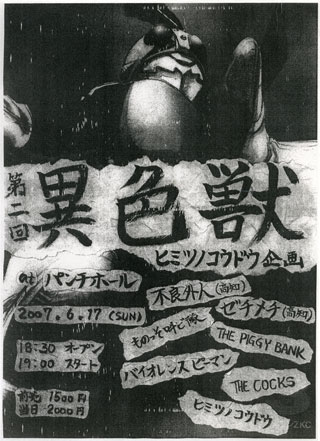 第二回
異色獣
ヒミツノコウドウ企画
at パンチホール
2007.6.17 (SUN)
18:30 オープン
19:00 スタート
前売 1500円
当日 2000円
不良外人 (高知)
ゼチメチ (高知)
ものっそ叫ビ隊
THE PIGGY BANK
バイオレンスピーマン
THE COCKS
ヒミツノコウドウ